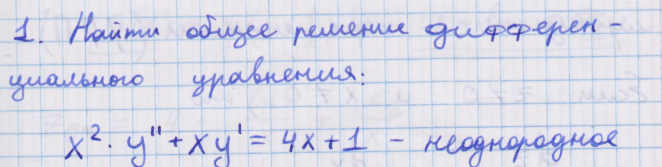 1. Найти общее решение дифферен-
циального уравнения:
x²·y''+xy'=4x+1 - неоднородное